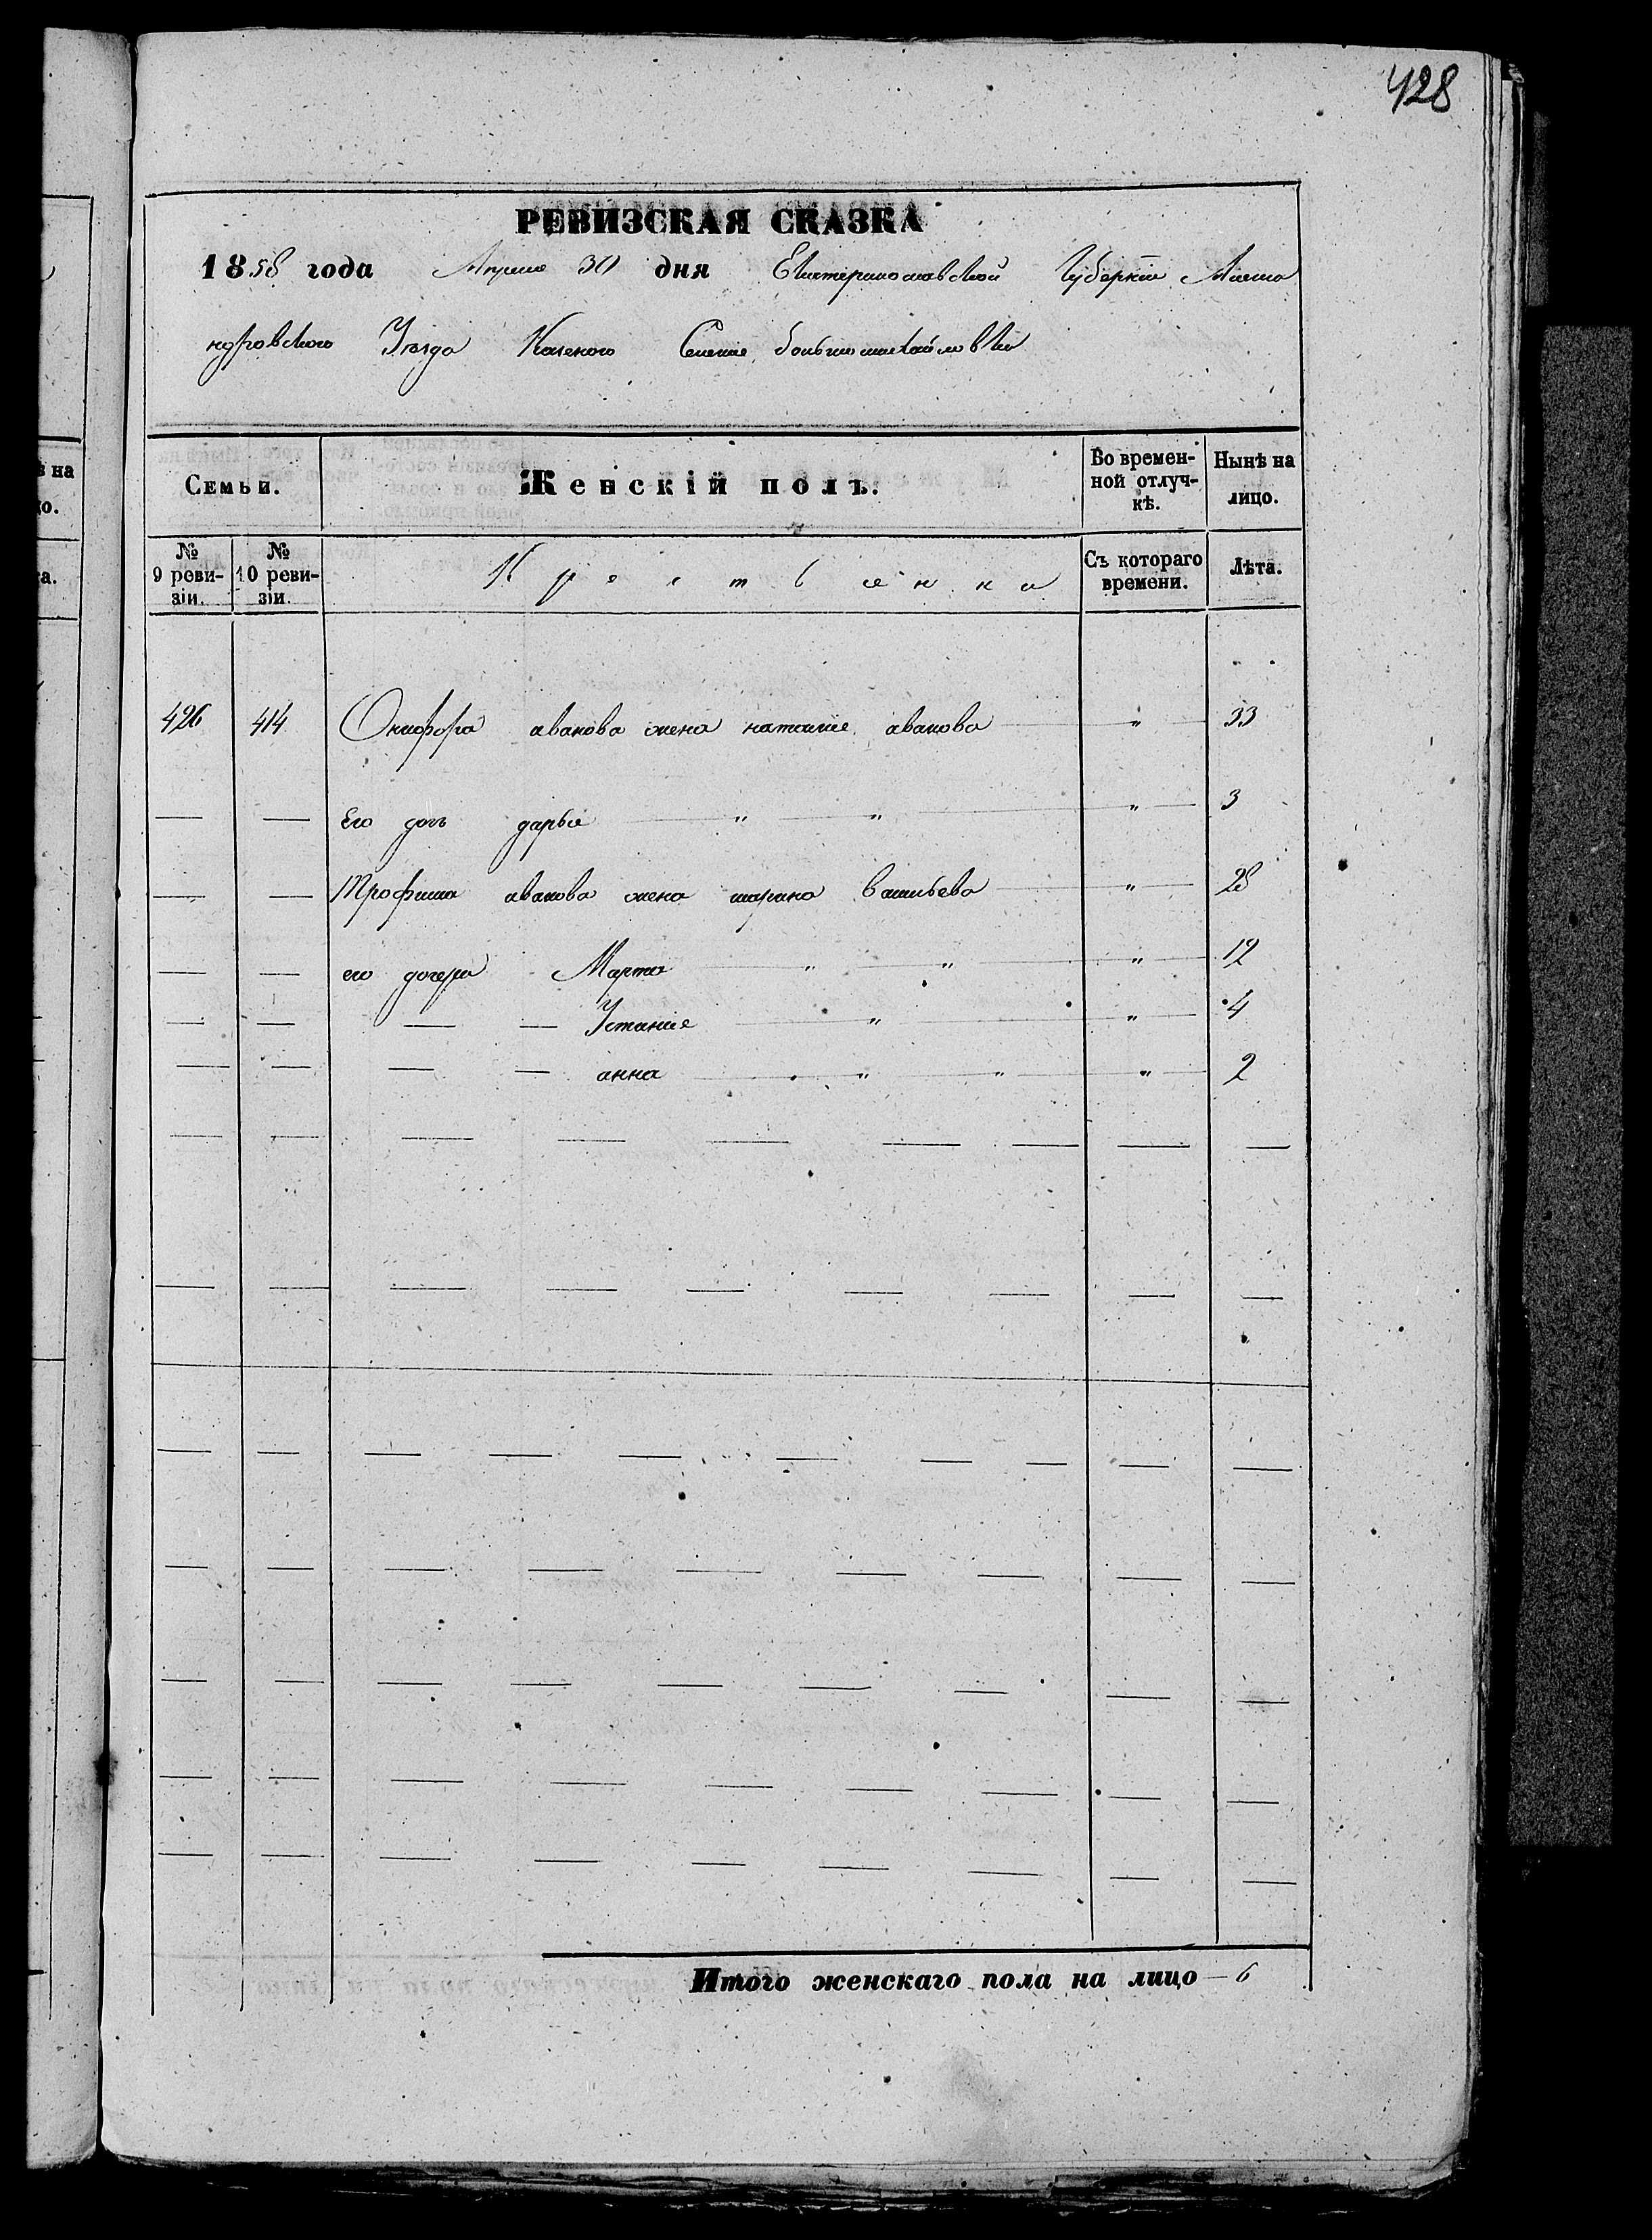 428
РЕВИЗСКАЯ СКАЗКА
1858 года Апреля 30 дня Екатеринославской Губернiи Алекса
ндровского Уезда Казеного Селенiе большомихайловки
Семьи. Женскiй полъ. Во времен-ной отлуч-кѣ. Нынѣ на лицо.
№ 9 реви-зiи. № 10 реви-зiи. Крестьенки Съ котораго времени. Лѣта.
426 414 Онифора иванова жена наталiе иванова " 33
Его дочь дарье " " " 3
Трофима иванова жена марина васильева " 28
его дочери Марта " " " 12
Устинiе " " 4
анна " " " 2
Итого женскаго пола на лицо 6
на
о.
а.